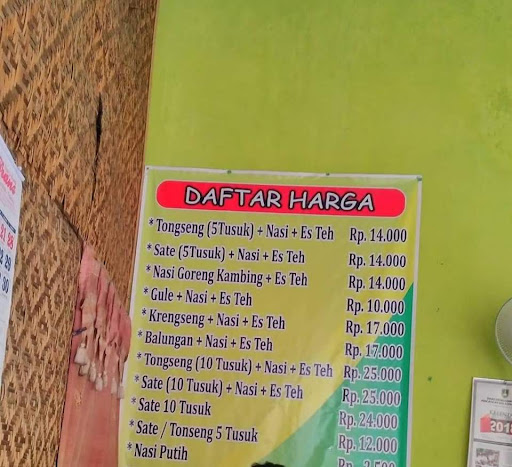 DAFTAR HARGA
* Tongseng (5Tusuk) + Nasi + Es Teh Rp. 14.000
* Sate (5Tusuk) + Nasi + Es Teh Rp. 14.000
* Nasi Goreng Kambing + Es Teh Rp. 14.000
* Gule + Nasi + Es Teh Rp. 10.000
* Krengseng + Nasi + Es Teh Rp. 17.000
* Balungan + Nasi + Es Teh Rp. 17.000
* Tongseng (10 Tusuk) + Nasi + Es Teh Rp. 25.000
* Sate (10 Tusuk) + Nasi + Es Teh Rp. 25.000
* Sate 10 Tusuk Rp. 24.000
* Sate / Tonseng 5 Tusuk Rp. 12.000
* Nasi Putih
2018